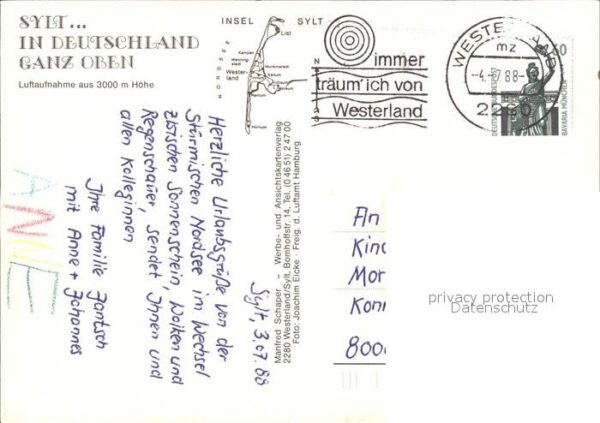 SYLT...
IN DEUTSCHLAND
GANZ OBEN
Luftaufnahme aus 3000 m Höhe
INSEL SYLT
List
Kampen
Westerland
Hörnum
immer
träum' ich von
Westerland
WESTERLAND
mz
-4.-7.88-
2280
60
DEUTSCHE BUNDESPOST
BAVARIA MÜNCHEN
Sylt, 3.07.88
Herzliche Urlaubsgrüße von der
Stürmischen Nordsee im Wechsel
zwischen Sonnenschein, Wolken und
Regenschauer, sendet Ihnen und
allen Kolleginnen
Ihre Familie Jantsch
mit Anne + Johannes
ANNE
Manfred Schaper – Werbe- und Ansichtskartenverlag
2280 Westerland/Sylt, Bomhoffstr. 14, Tel. (0 46 51) 2 47 00
Foto: Joachim Eicke · Freig. d. Luftamt Hamburg
An
Kin
Mor
Kon
800
privacy protection
Datenschutz